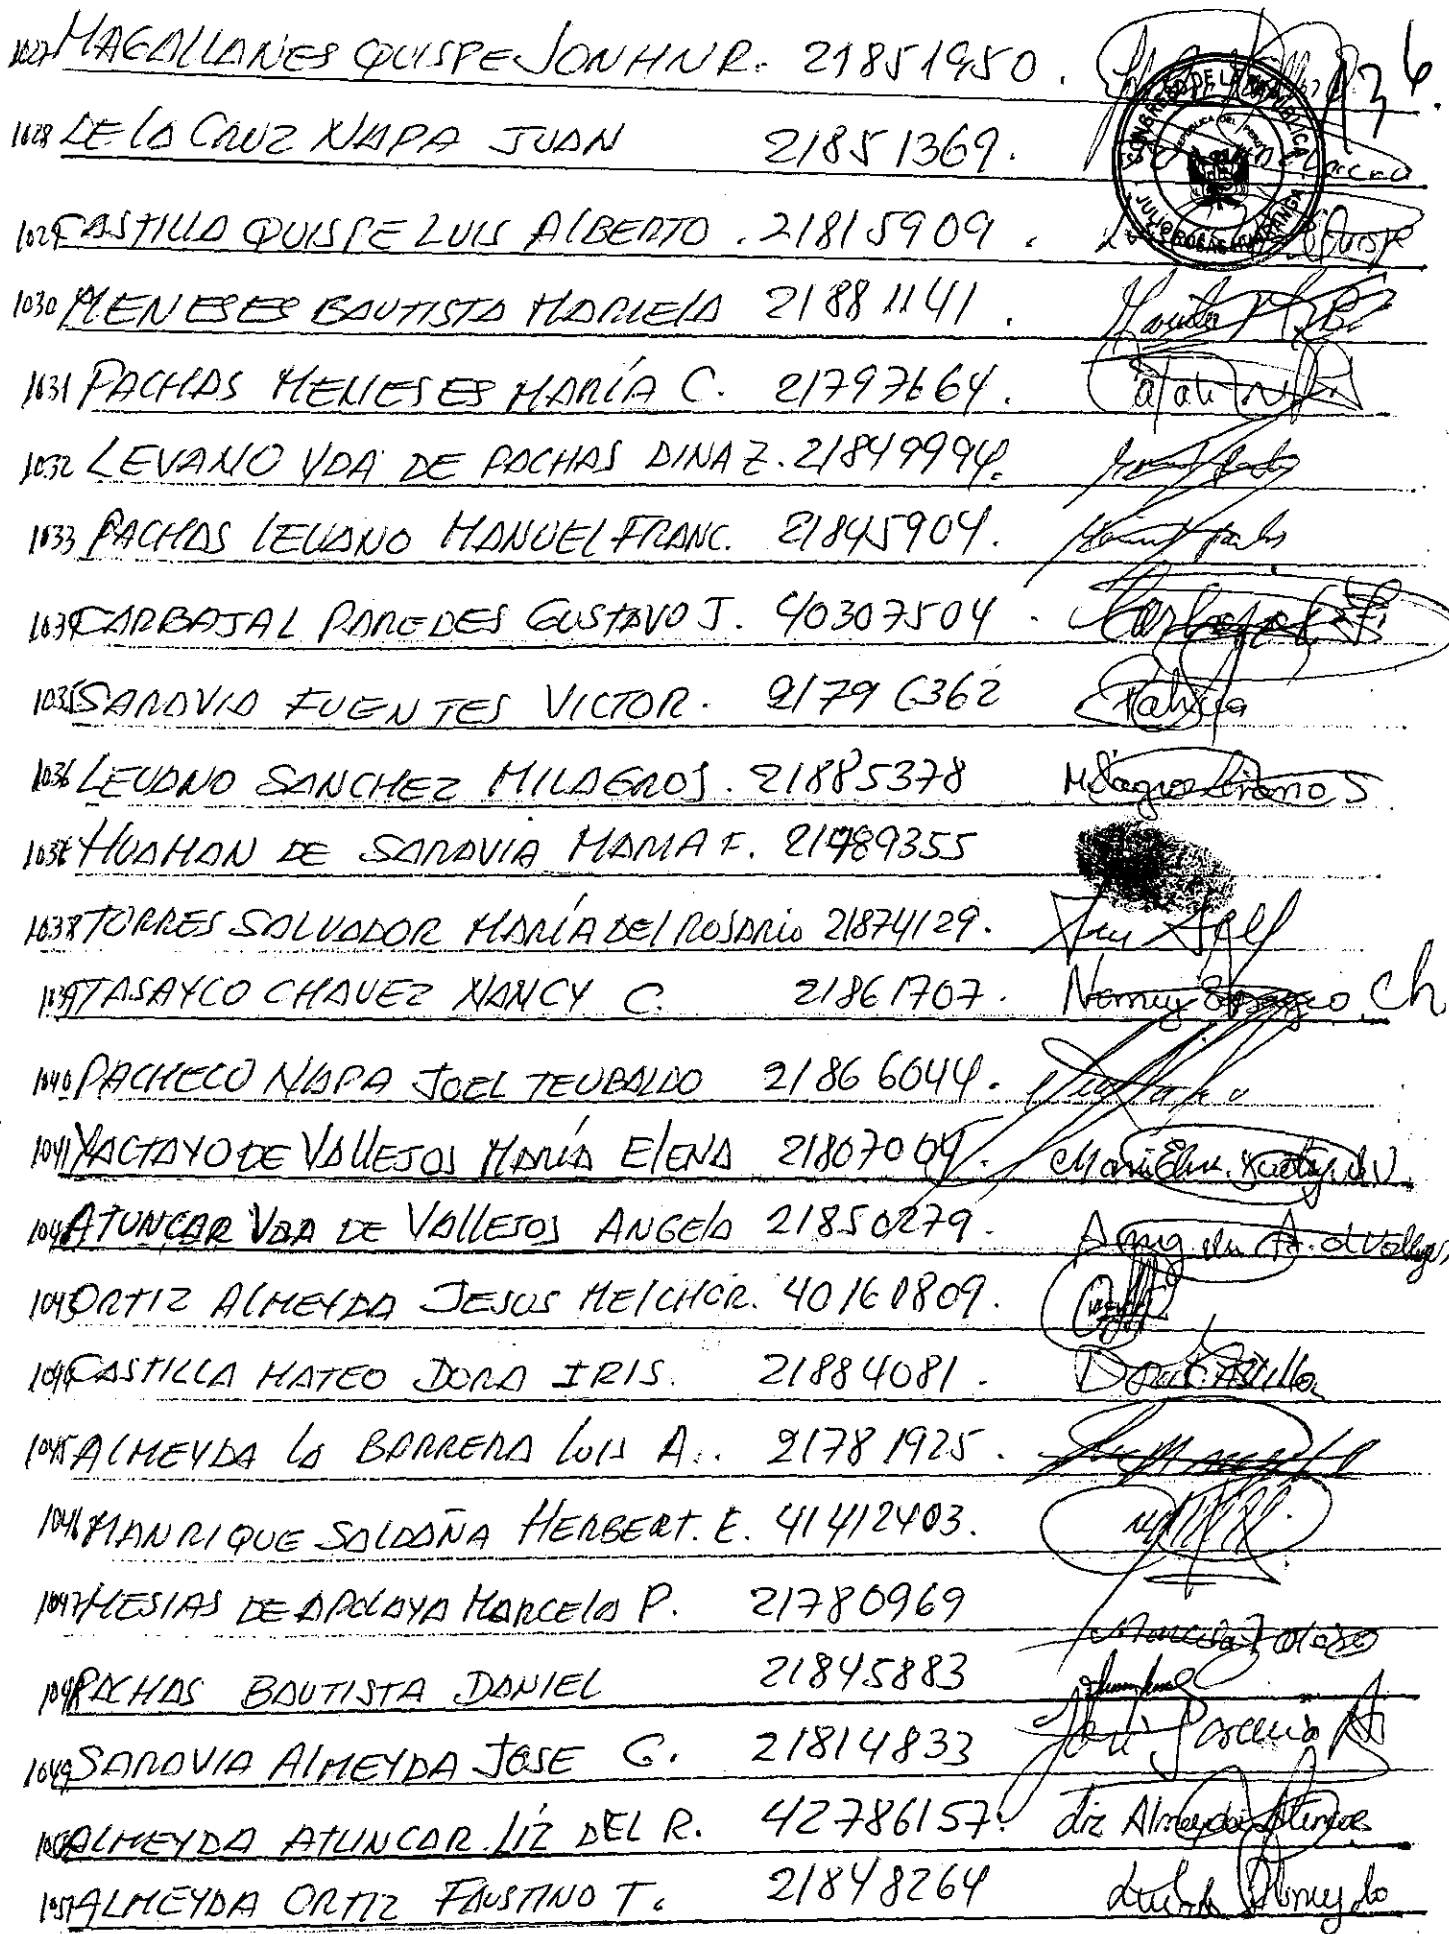 1027 MAGALLANES QUISPE JONHN R. 21851950.
136.
CONGRESO DE LA REPÚBLICA
REPUBLICA DEL PERU
JULIO ROJAS HUARANGA
1028 DE LA CRUZ NAPA JUAN 21851369.
1029 CASTILLA QUISPE LUIS ALBERTO. 21815909.
1030 MENESES BAUTISTA MARIELA 21881141.
1031 PACHAS MENESES MARÍA C. 21797664.
1032 LEVANO VDA DE PACHAS DINA Z. 21849994.
1033 PACHAS LEVANO MANUEL FRANC. 21845904.
1034 CARBAJAL PAREDES GUSTAVO J. 40307504.
1035 SARAVIA FUENTES VICTOR. 21796362
1036 LEVANO SANCHEZ MILAGROS. 21885378 Milagros Levano S
1037 HUAMAN DE SARAVIA MARIA F. 21789355
1038 TORRES SALVADOR MARÍA DEL ROSARIO 21874129.
1039 TASAYCO CHAVEZ NANCY C. 21861707. Nancy Tasayco Ch
1040 PACHECO NAPA JOEL TEUBALDO 21866044.
1041 YACTAYO DE VALLEJOS MARÍA ELENA 21807004.
1042 ATUNCAR VDA DE VALLEJOS ANGELA 21850279.
1043 ORTIZ ALMEYDA JESUS MELCHOR. 40160809.
1044 CASTILLA MATEO DORA IRIS. 21884081.
1045 ALMEYDA LA BARRERA LUIS A.. 21781925.
1046 MANRIQUE SALDAÑA HERBERT. E. 41412403.
1047 MESIAS DE APOLAYA MARCELA P. 21780969
1048 PACHAS BAUTISTA DANIEL 21845883
1049 SARAVIA ALMEYDA JOSE G. 21814833
1050 ALMEYDA ATUNCAR LÍZ DEL R. 42786157. Liz Almeyda Atuncar
1051 ALMEYDA ORTIZ FAUSTINO T. 21848264